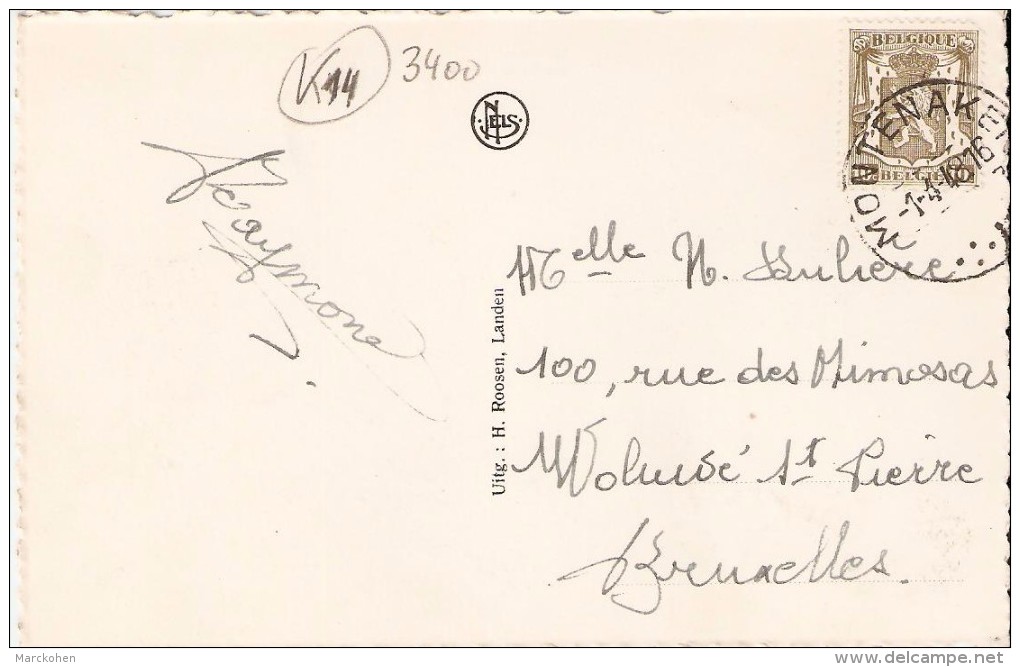 K14
3400
NELS
BELGIQUE
BELGIË
MONTENAKEN
-1-4-48-16
Raymone
Uitg. : H. Roosen, Landen
Melle N.
100, rue des Mimosas
Woluwé St Pierre
Bruxelles.
Marckohen
www.delcampe.net